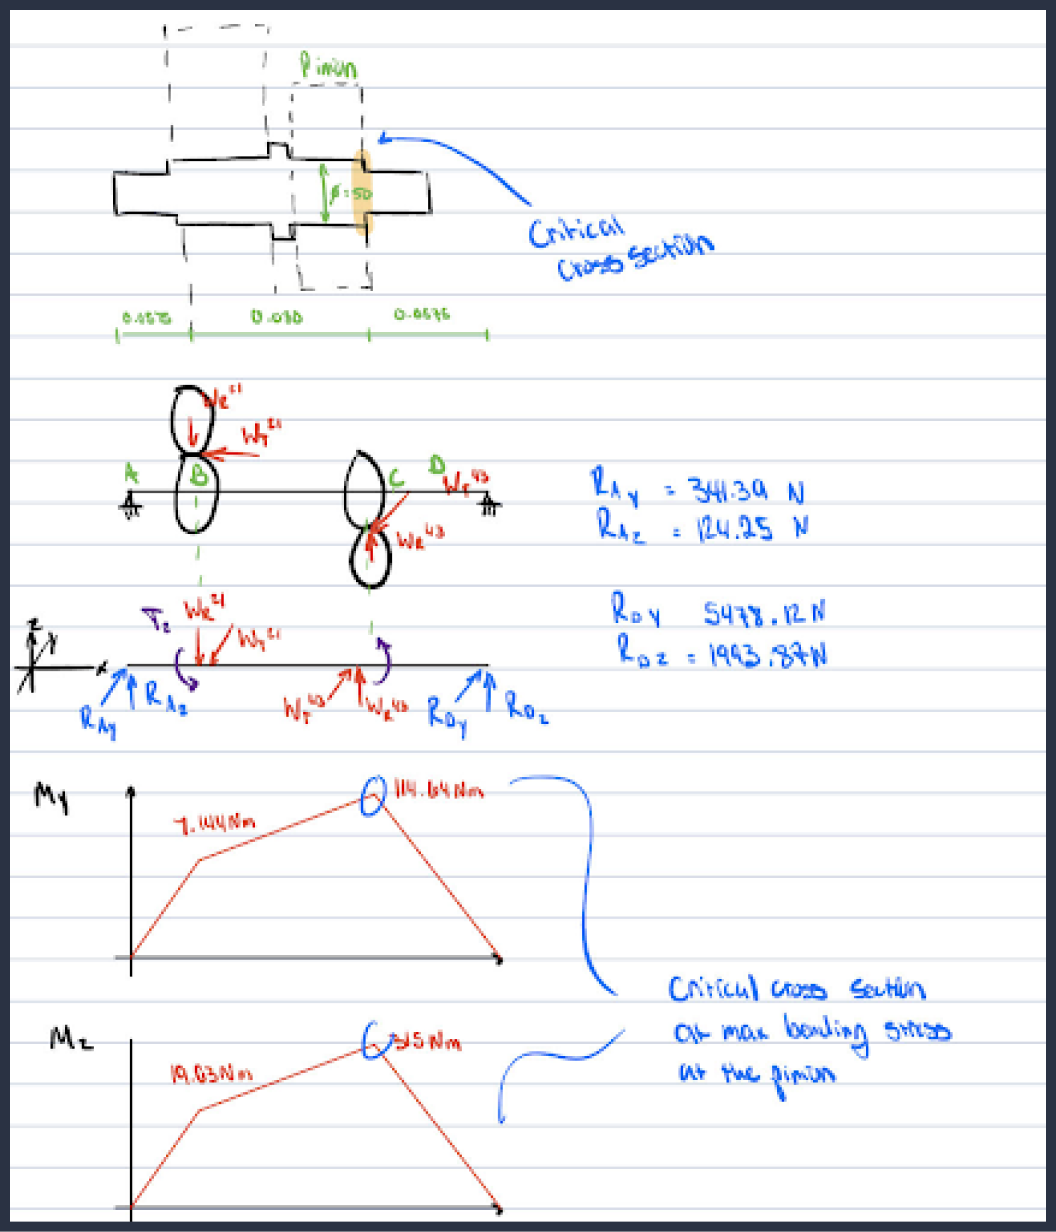 Pinion
ϕ=50
Critical
cross section
0.0575 0.080 0.0575
W_R^21
W_T^21
A B C D
W_T^43
W_R^43
R_Ay = 341.39 N
R_Az = 124.25 N
R_Dy 5478.12N
R_Dz = 1993.87N
T_2 W_R^21
W_T^21
z
y
x
R_Ay R_Az W_T^43 W_R^43 R_Dy R_Dz
My
114.64Nm
7.144Nm
Critical cross section
at max bending stress
at the pinion
Mz
315Nm
19.63Nm